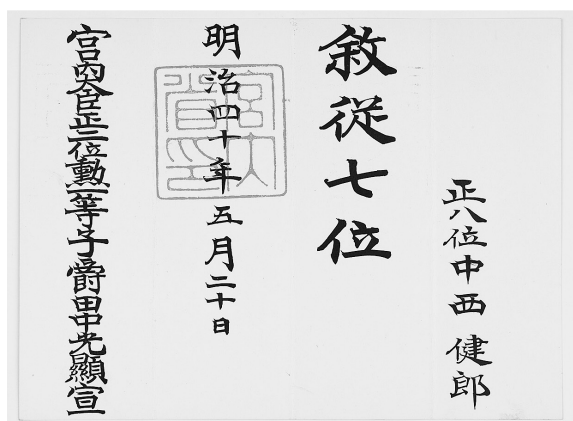 正八位中西健郎
敘從七位
明治四十年五月二十日
宮内大臣正二位勳一等子爵田中光顯宣
宮内省印